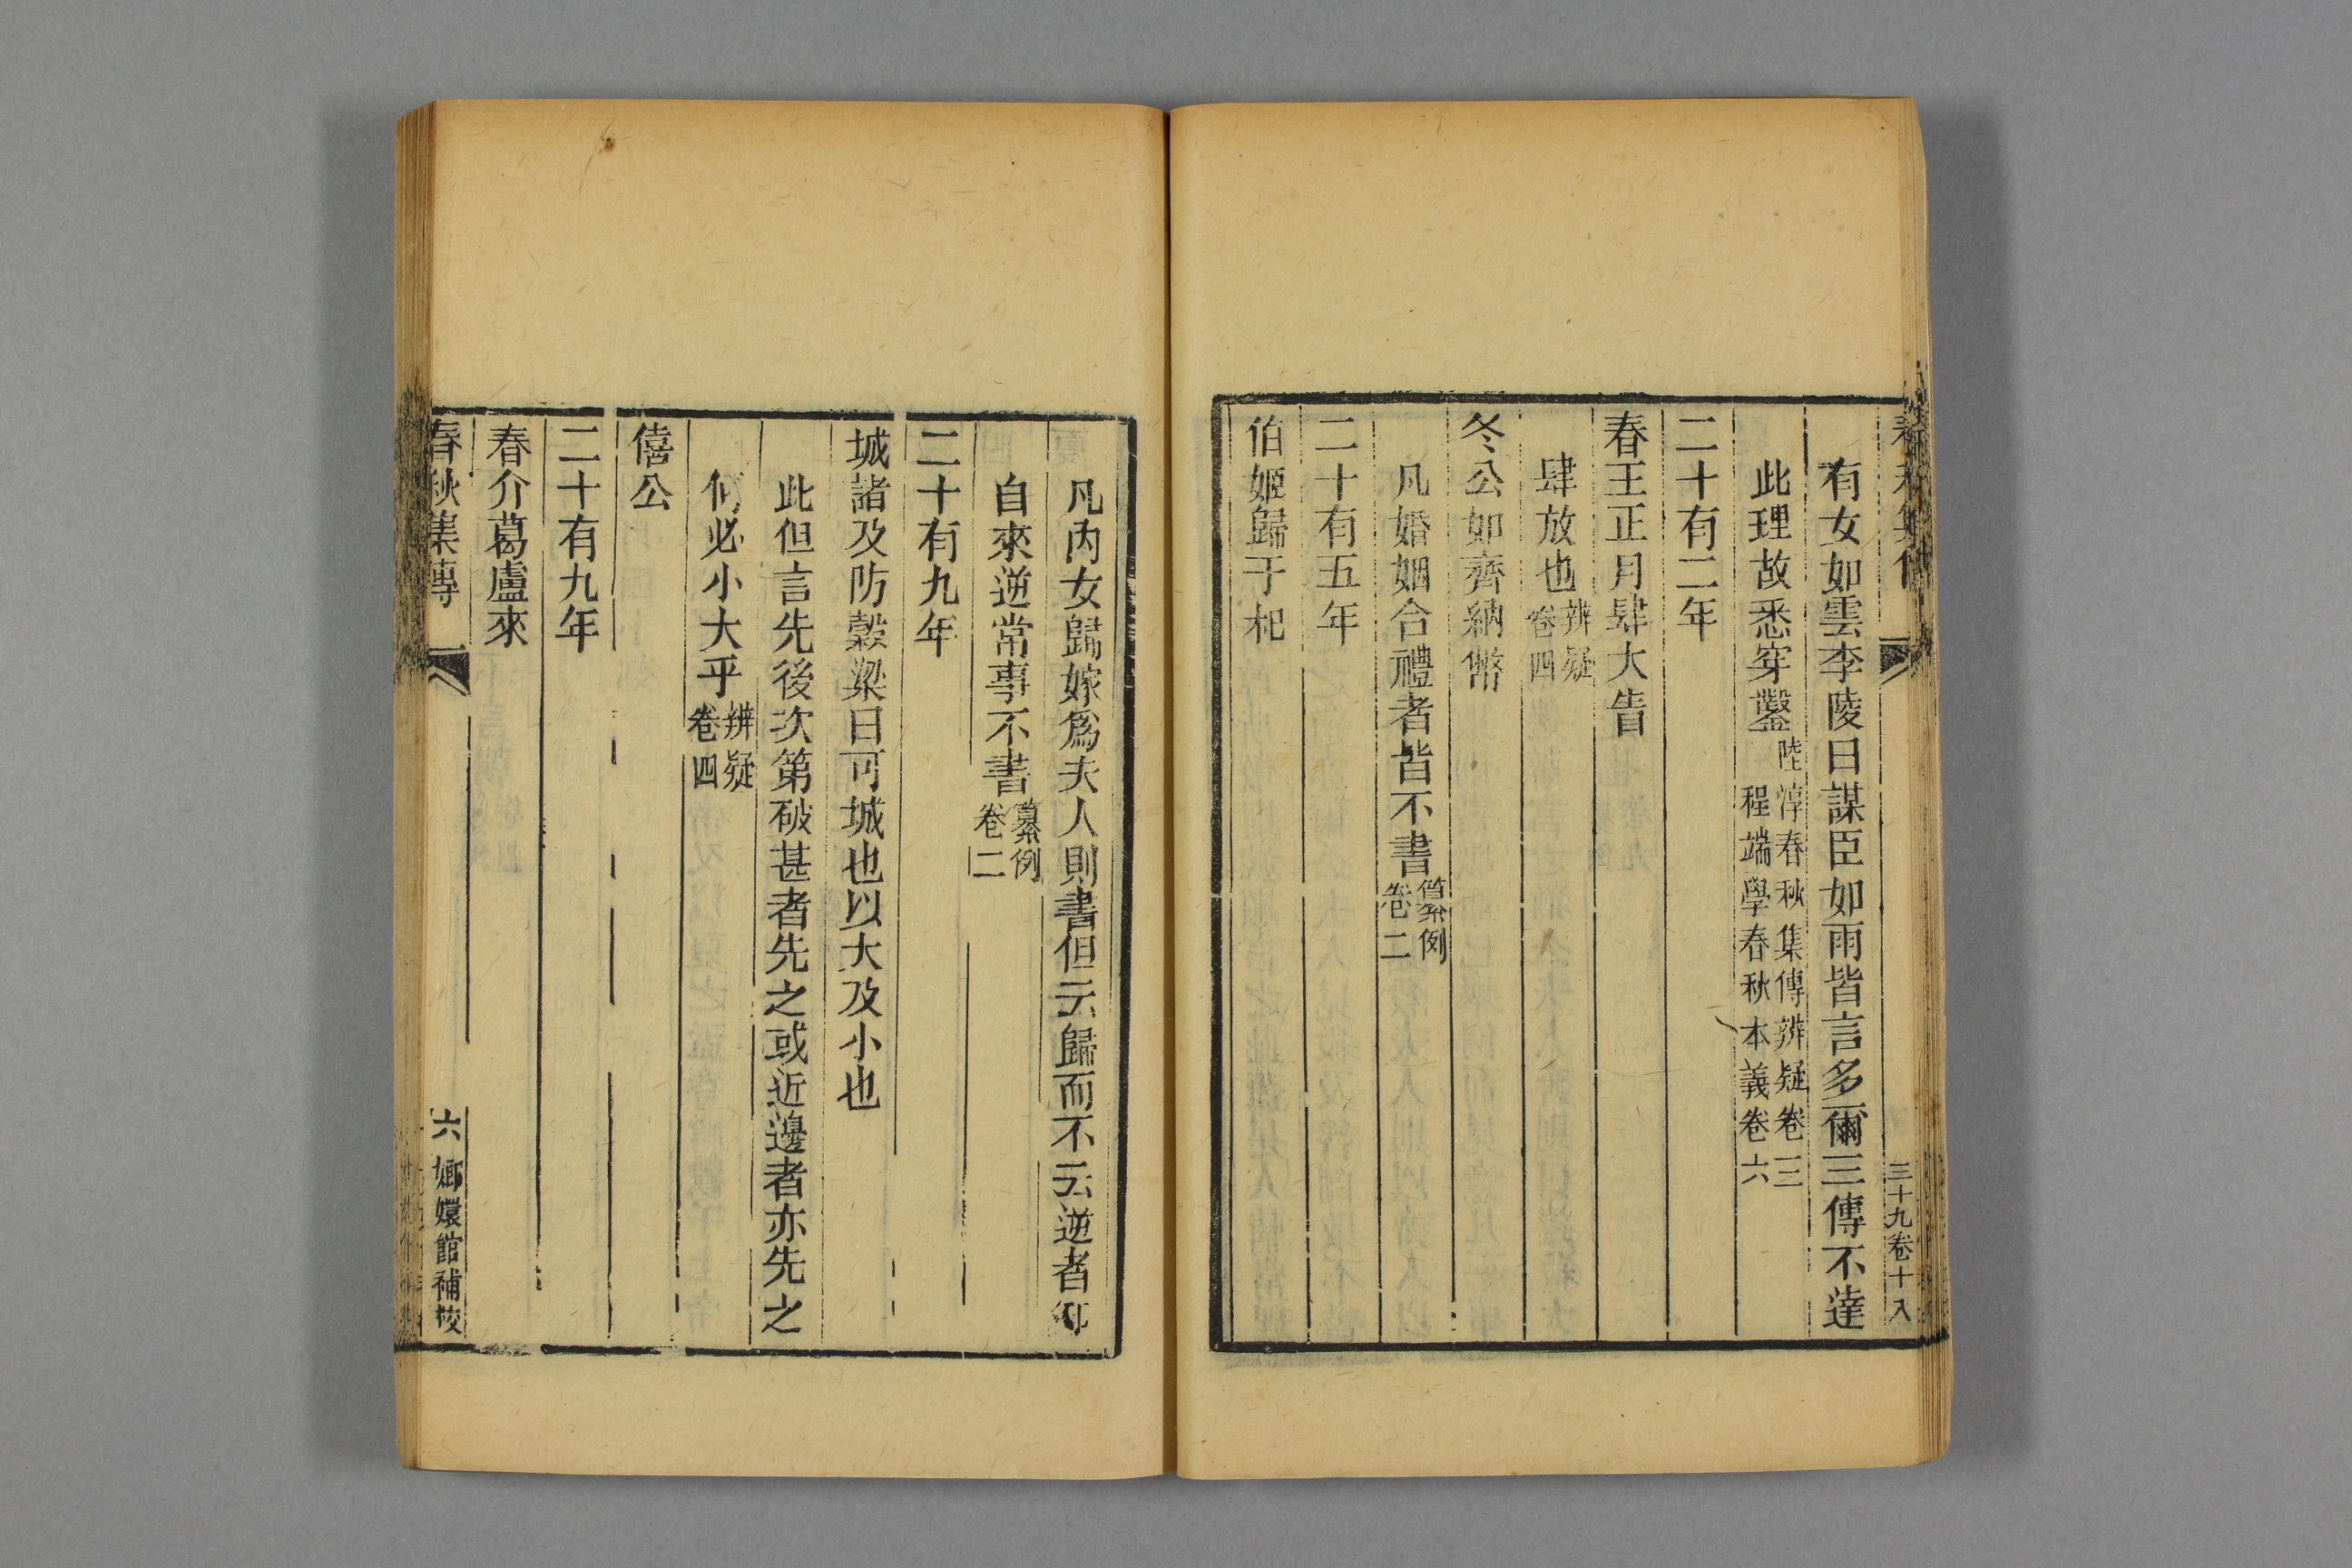 三十九卷十八
有女如雲李陵曰謀臣如雨皆言多爾三傳不達
此理故悉穿鑿陸淳春秋集傳辨疑卷三
程端學春秋本義卷六
二十有二年
春王正月肆大眚
肆放也辨疑
卷四
冬公如齊納幣
凡婚姻合禮者皆不書纂例
卷二
二十有五年
伯姬歸于杞
凡內女歸嫁爲夫人則書但云歸而不云逆者
自來逆常事不書纂例
卷二
二十有九年
城諸及防穀梁曰可城也以大及小也
此但言先後次第破甚者先之或近邊者亦先之
何必小大乎辨疑
卷四
僖公
二十有九年
春介葛盧來
春秋集傳
六
嫏嬛館補校